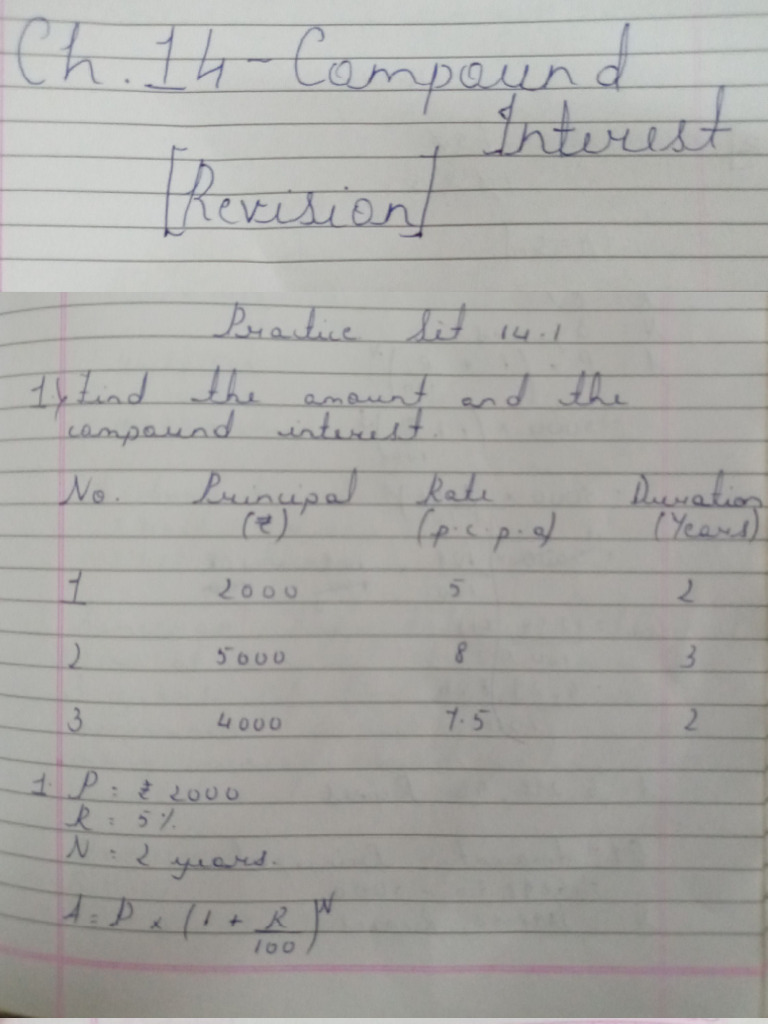 Ch. 14 - Compound
Interest
[Revision]
Practice Set 14.1
1) Find the amount and the
compound interest.
No. Principal Rate Duration
(₹) (p.c.p.a) (Years)
1 2000 5 2
2 5000 8 3
3 4000 7.5 2
1. P = ₹ 2000
R = 5%.
N = 2 years.
A = P × (1 + R/100)^N